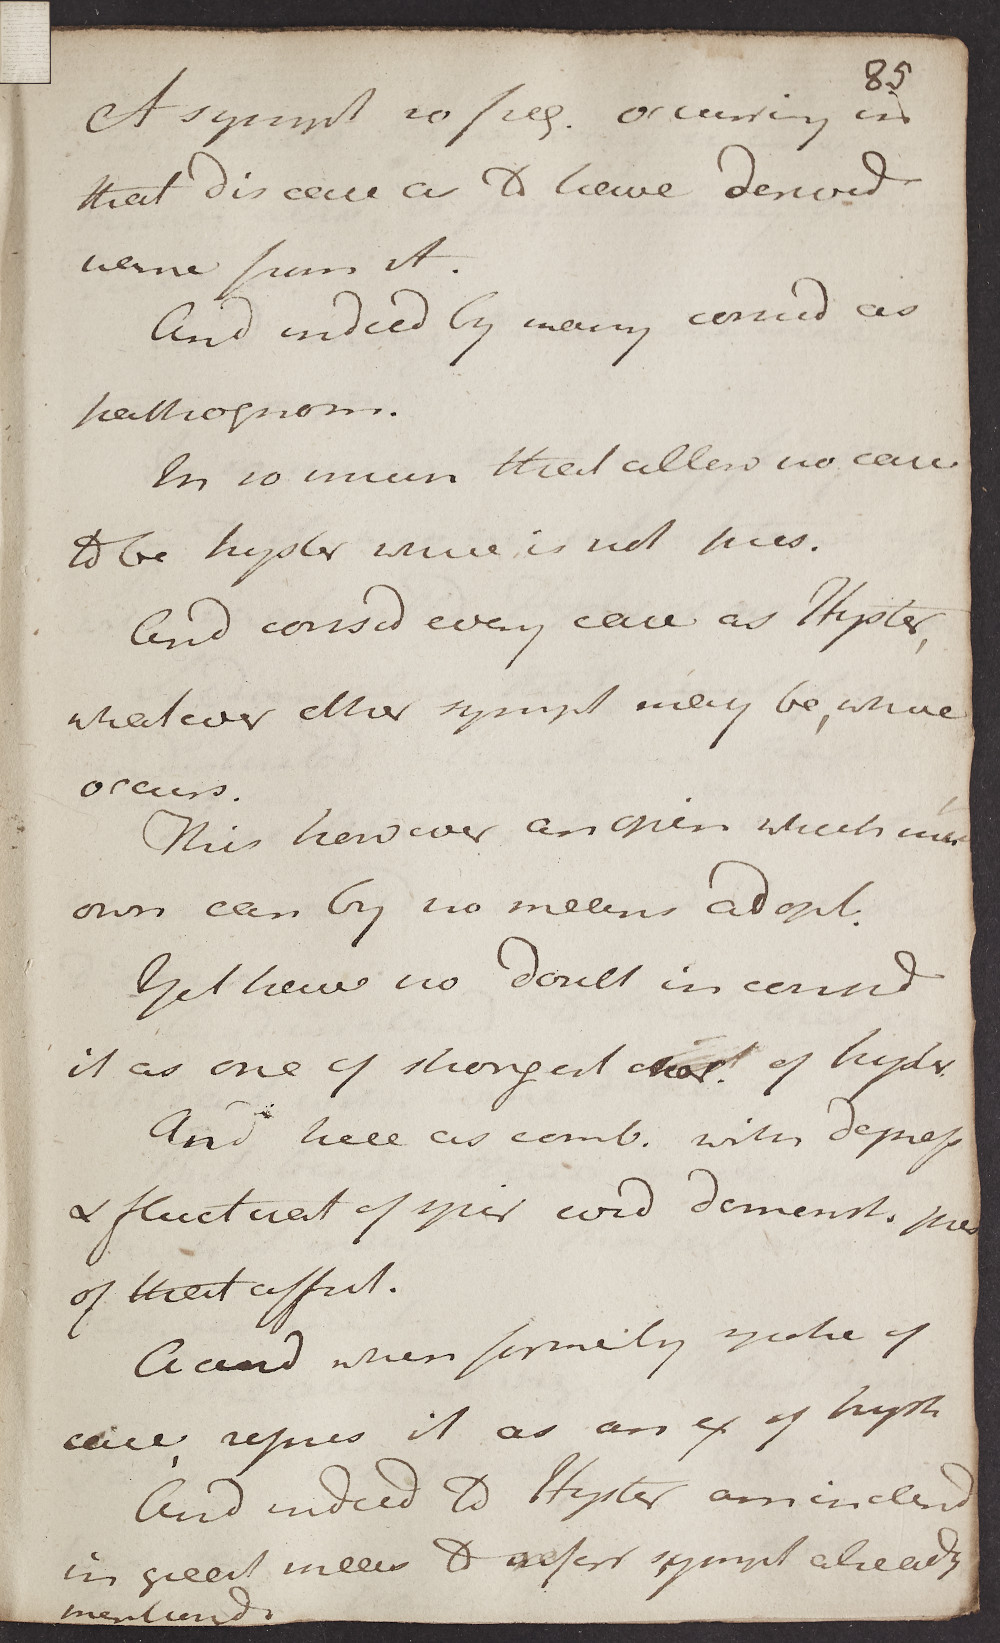 85
A sympt so freq. occurring in
that disease as to have derived
name from it.
And indeed by many consid as
pathognom.
In so much that allow no case
to be hyster where is not pres.
And consid every case as Hyster,
whatever other sympt may be, where
occurs.
This however an opin which I
own can by no means adopt.
Yet have no doubt in consid
it as one of strongest char. of hyster.
And here as comb. with depress
& fluctuat of spir and demonst. pres
of that affect.
Accord when formerly spoke of
case, repres it as an ex of hyst
And indeed to Hyster am inclend
in great meas to refer sympt already
mentiond.